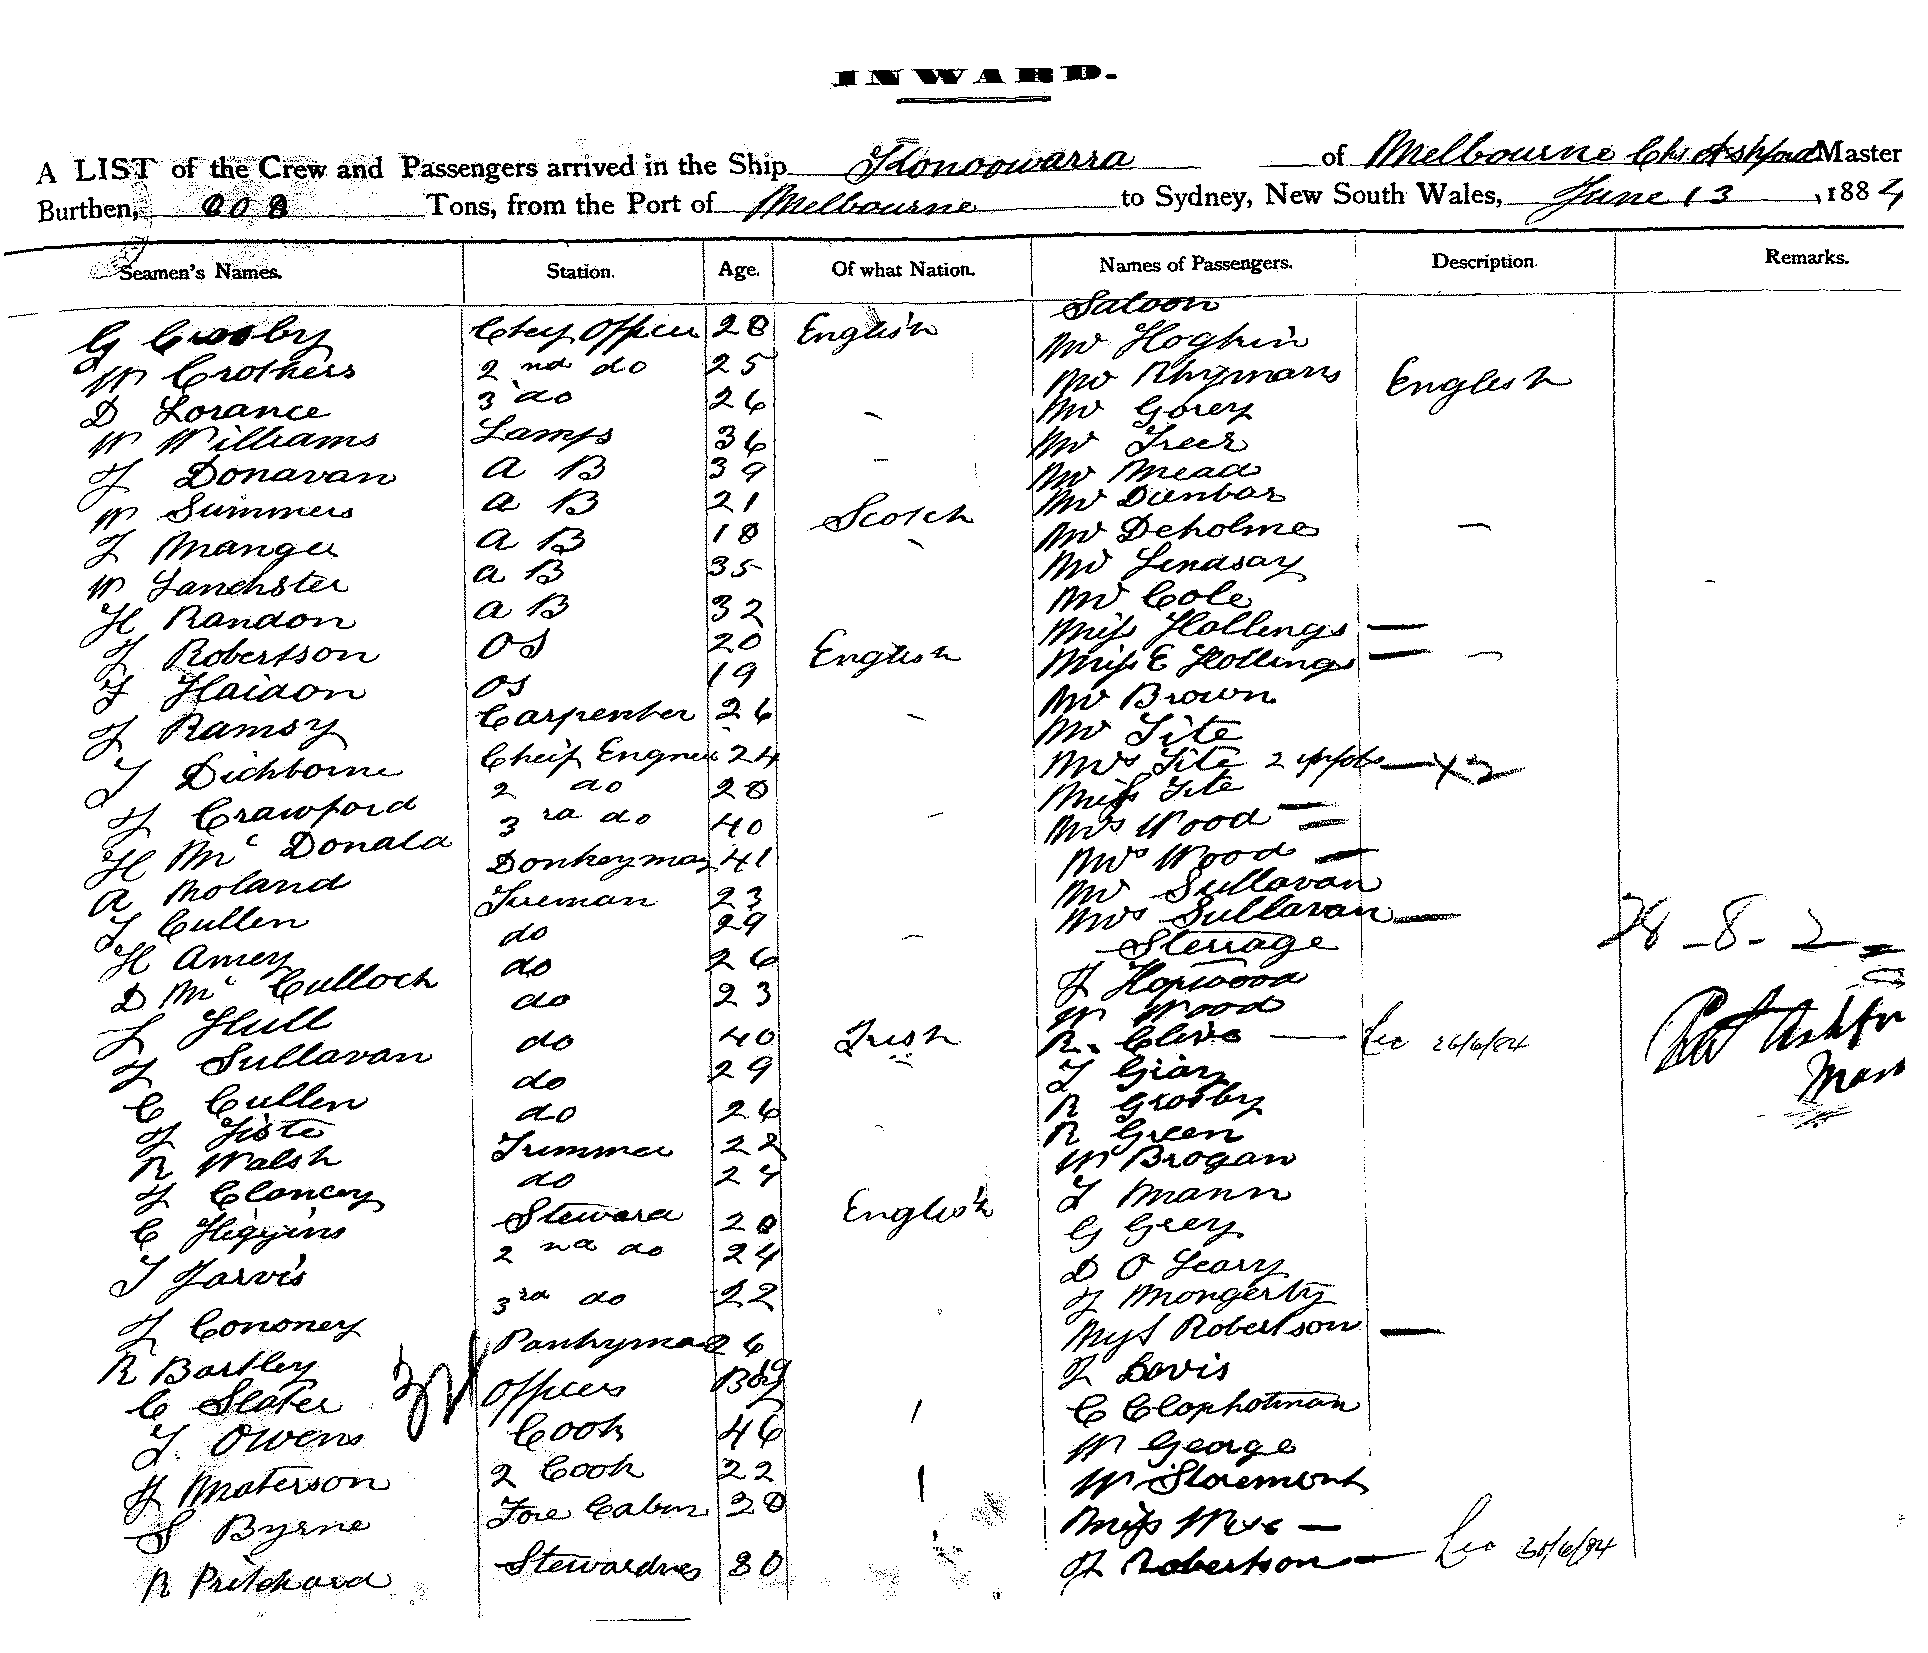 INWARD.
A LIST of the Crew and Passengers arrived in the Ship Konoowarra of Melbourne Chs Ashford Master
Burthen, 808 Tons, from the Port of Melbourne to Sydney, New South Wales, June 13, 1884
Seamen's Names. Station. Age. Of what Nation. Names of Passengers. Description. Remarks.
Saloon
G Crosby Cheif Officer 28 English Mr Hoghin
W Crothers 2nd do 25 Mr Rhymans English
D Lorance 3 do 26 Mr Gorey
W Williams Lamps 36 Mr Treer
J Donavan A B 39 Mr Mead
W Summers A B 21 Scotch Mr Dunbar
J Manger A B 18 Mr Deholme
W Lanchster A B 35 Mr Lindsay
H Randon A B 32 Mr Cole
J Robertson OS 20 Miss Hollings
J Haidon OS 19 English Miss E Hollings
J Ramsy Carpenter 26 Mr Brown
Mr Tite
T Dichborne Cheif Engneer 24 Mrs Tite 2 infts
J Crawford 2 do 28 Miss Tite
H Mc Donald 3rd do 40 Mrs Wood
A Moland Donkeyman 41 Mrs Wood
T Cullen Fireman 23 Mr Sullavan
H Amey do 29 Mrs Sullavan
Sterrage
D Mc Culloch do 26 J Hopwood
J Hull do 23 W Wood
J Sullavan do 40 Irish R. Clive 26/6/84
C Cullen do 29 J Giary
J Fiste do 26 R Grosby
R Walsh Trimmer 22 R Green
J Clancey do 24 W Brogan
C Higgins Steward 28 English J Mann
T Jarvis 2nd do 24 G Grey
J Cononey 3rd do 22 D O Leary
R Bartley Pantryman 26 J Mongerty
C Slater Officers Boy Mrs Robertson
T Owens Cook 46 J Davis
J Materson 2 Cook 22 C Claphotman
S Byrne Fore Cabin 28 W George
R Pritchard Stewardnes 30 W Storemont
Miss
J Robertson 30/6/84
28-8-2
Ashfor